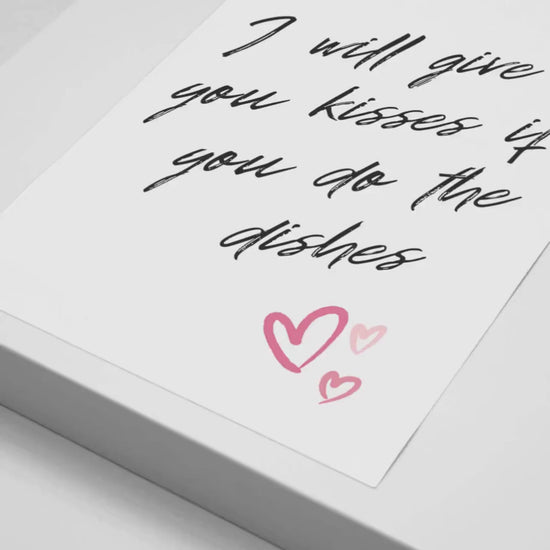 I will give
you kisses if
you do the
dishes